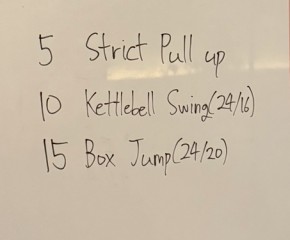 5 Strict Pull up
10 Kettlebell Swing(24/16)
15 Box Jump(24/20)